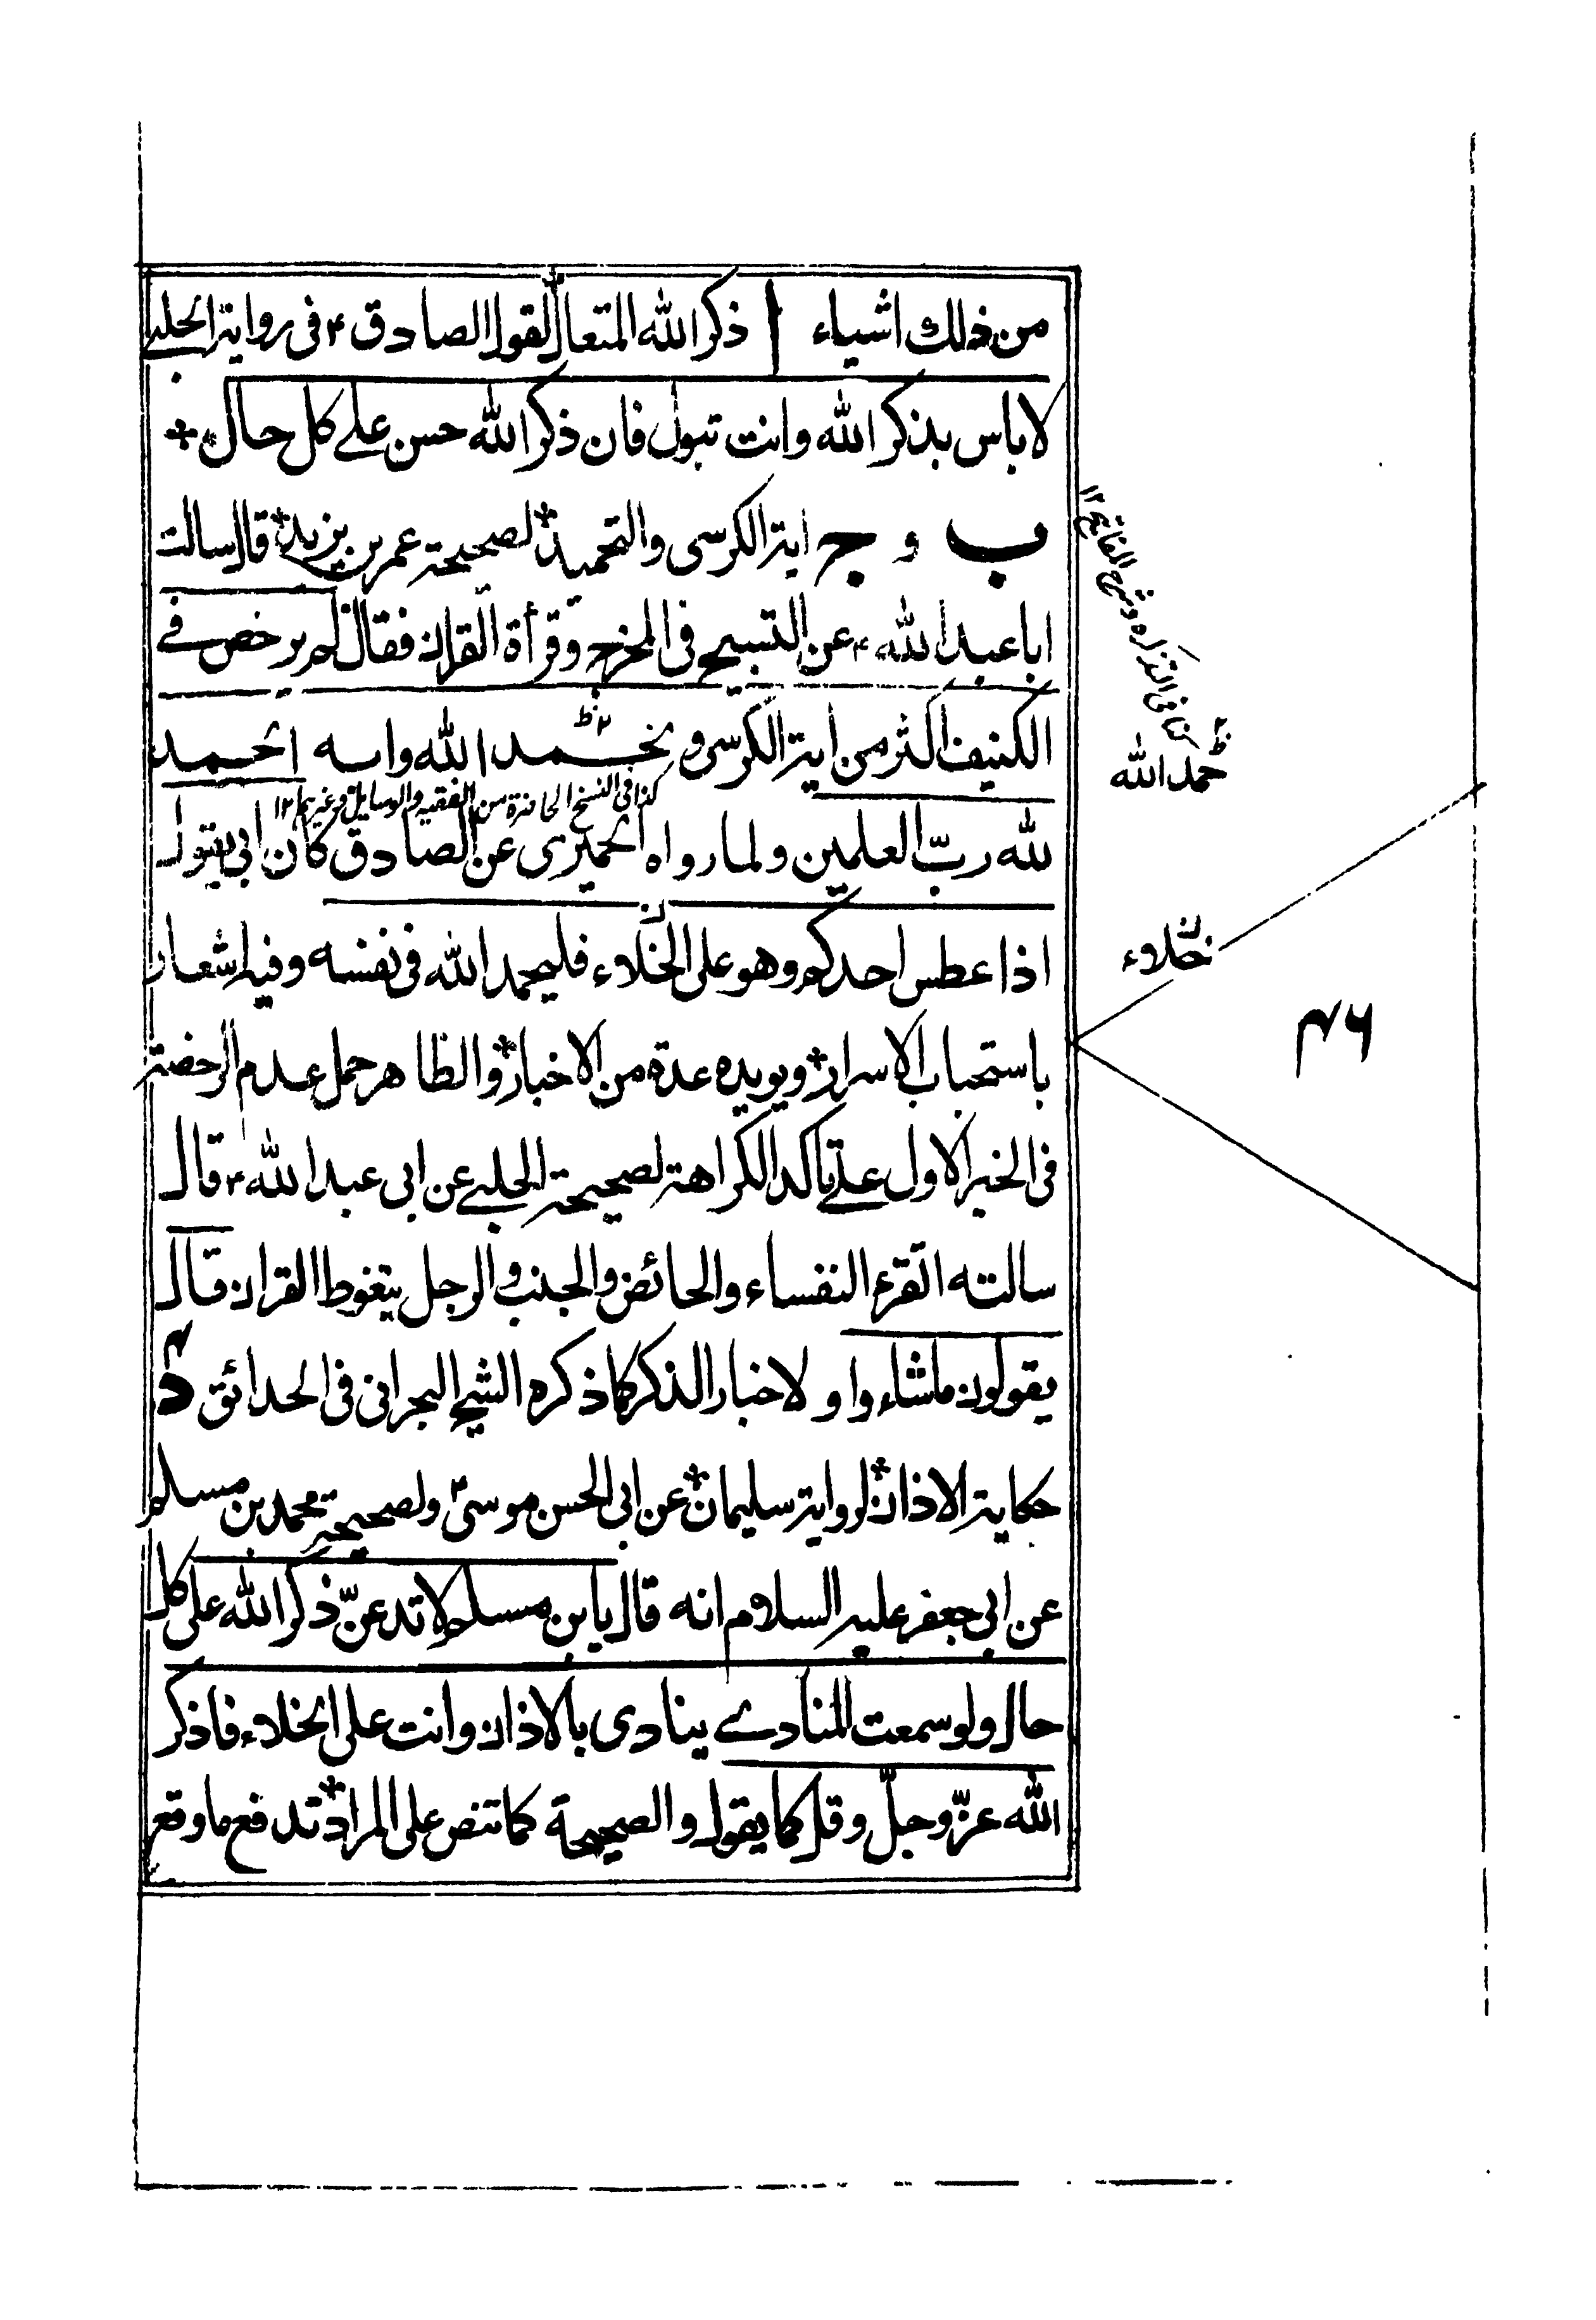 من ذلك اشياء ا ذكر الله المتعال لقول الصادق ع في رواية الحلبي
لا باس بذكر الله وانت تبول فان ذكر الله حسن على كل حال
ب و ج اية الكرسي والتحميد لصحيحة عمر بن يزيد قال سالت
ابا عبد الله ع عن التسبيح في المخرج وقرأة القران فقال لم يرخص في
الكنيف اكثر من اية الكرسي و بحمد الله واسه الحمد
كذا في النسخ الحاضرة من الفقيه والوسايل وغيرهما ١٢
لله ربّ العلمين ولما رواه الحميري عن الصادق كان ابي يقول
اذا عطس احدكم وهو على الخلاء فليحمد الله في نفسه وفيه اشعار
باستحباب الاسرار ويويده عدة من الاخبار والظاهر حمل عدم الرخصة
في الخبر الاول على تاكد الكراهة لصحيحة الحلبي عن ابي عبد الله ع قال
سالته اتقرء النفساء والحائض والجنب والرجل يتغوط القران قال
يقولون ماشاءوا ولاخبار الذكر كما ذكره الشيخ البحراني في الحدائق د
حكاية الاذان لرواية سليمان عن ابي الحسن موسى ع ولصحيحة محمد بن مسلم
عن ابي جعفر عليه السلام انه قال يابن مسلم لا تدعنّ ذكر الله على كل
حال ولو سمعت المنادي ينادي بالاذان وانت على الخلاء فاذكر
الله عزّ وجلّ وقل كما يقول والصحيحة كما تنص على المراد تدفع ما وقع
كذا في التذكره وشرح المفاتيح ١٢
حمد الله
خلاء
۴۶